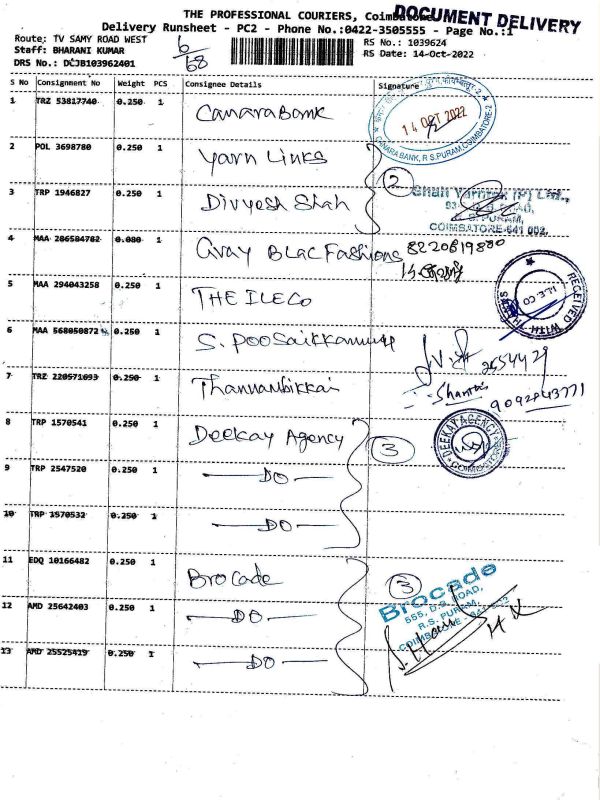 THE PROFESSIONAL COURIERS, Coimbatore
DOCUMENT DELIVERY
Delivery Runsheet - PC2 - Phone No.:0422-3505555 - Page No.:1
Route: TV SAMY ROAD WEST
Staff: BHARANI KUMAR
DRS No.: DCJB103962401
6/68
RS No.: 1039624
RS Date: 14-Oct-2022
S No Consignment No Weight PCS Consignee Details Signature
1 TRZ 53817740 0.250 1 Canara Bank
14 OCT 2022
CANARA BANK, R S PURAM COIMBATORE-2
2 POL 3698780 0.250 1 Yarn Links
3 TRP 1946827 0.250 1 Divyesh Shah
2
R.S. PURAM,
COIMBATORE-641 002.
4 MAA 286584782 0.080 1 Gray Blac Fashions
5 MAA 294043258 0.250 1 THE ILE Co
RECEIVED WITH THANKS
ILE CO
6 MAA 568050872 0.250 1
7 TRZ 220571693 0.250 1 Thannambikkai
9092843771
8 TRP 1570541 0.250 1 Deekay Agency
3
DEEKAY AGENCY
COIMBATORE
9 TRP 2547520 0.250 1 — DO —
10 TRP 1570532 0.250 1 — DO —
11 EDQ 10166482 0.250 1 Brocade
3
Brocade
555, D.B. ROAD,
R.S. PURAM,
COIMBATORE - 641 002
12 AMD 25642403 0.250 1 — DO —
13 AMD 25525419 0.250 1 — DO —